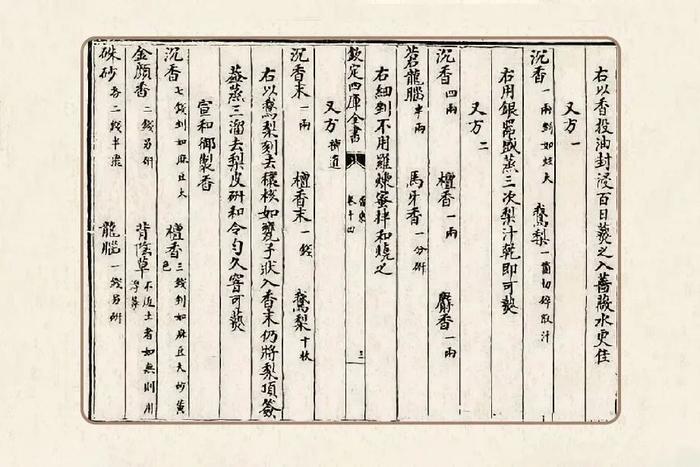 右以香投油封浸百日爇之入薔薇水更佳
又方一
沉香一兩剉如炷大 鵞梨一箇切碎取汁
右用銀器盛蒸三次梨汁乾即可爇
又方二
沉香四兩 檀香一兩 麝香一兩
蒼龍腦半兩 馬牙香一分研
右細剉不用羅煉蜜拌和燒之
欽定四庫全書 香乘 卷十四
又方補遺
沉香末一兩 檀香末一錢 鵞梨十枚
右以鵞梨刻去穰核如甕子狀入香末仍將梨頂簽
蓋蒸三溜去梨皮研和令勻久窨可爇
宣和御製香
沉香七錢剉如麻豆大 檀香三錢剉如麻豆大炒黃色
金顏香二錢另研 背陰草不近土者如無則用浮萍
硃砂各二錢半飛 龍腦一錢另研